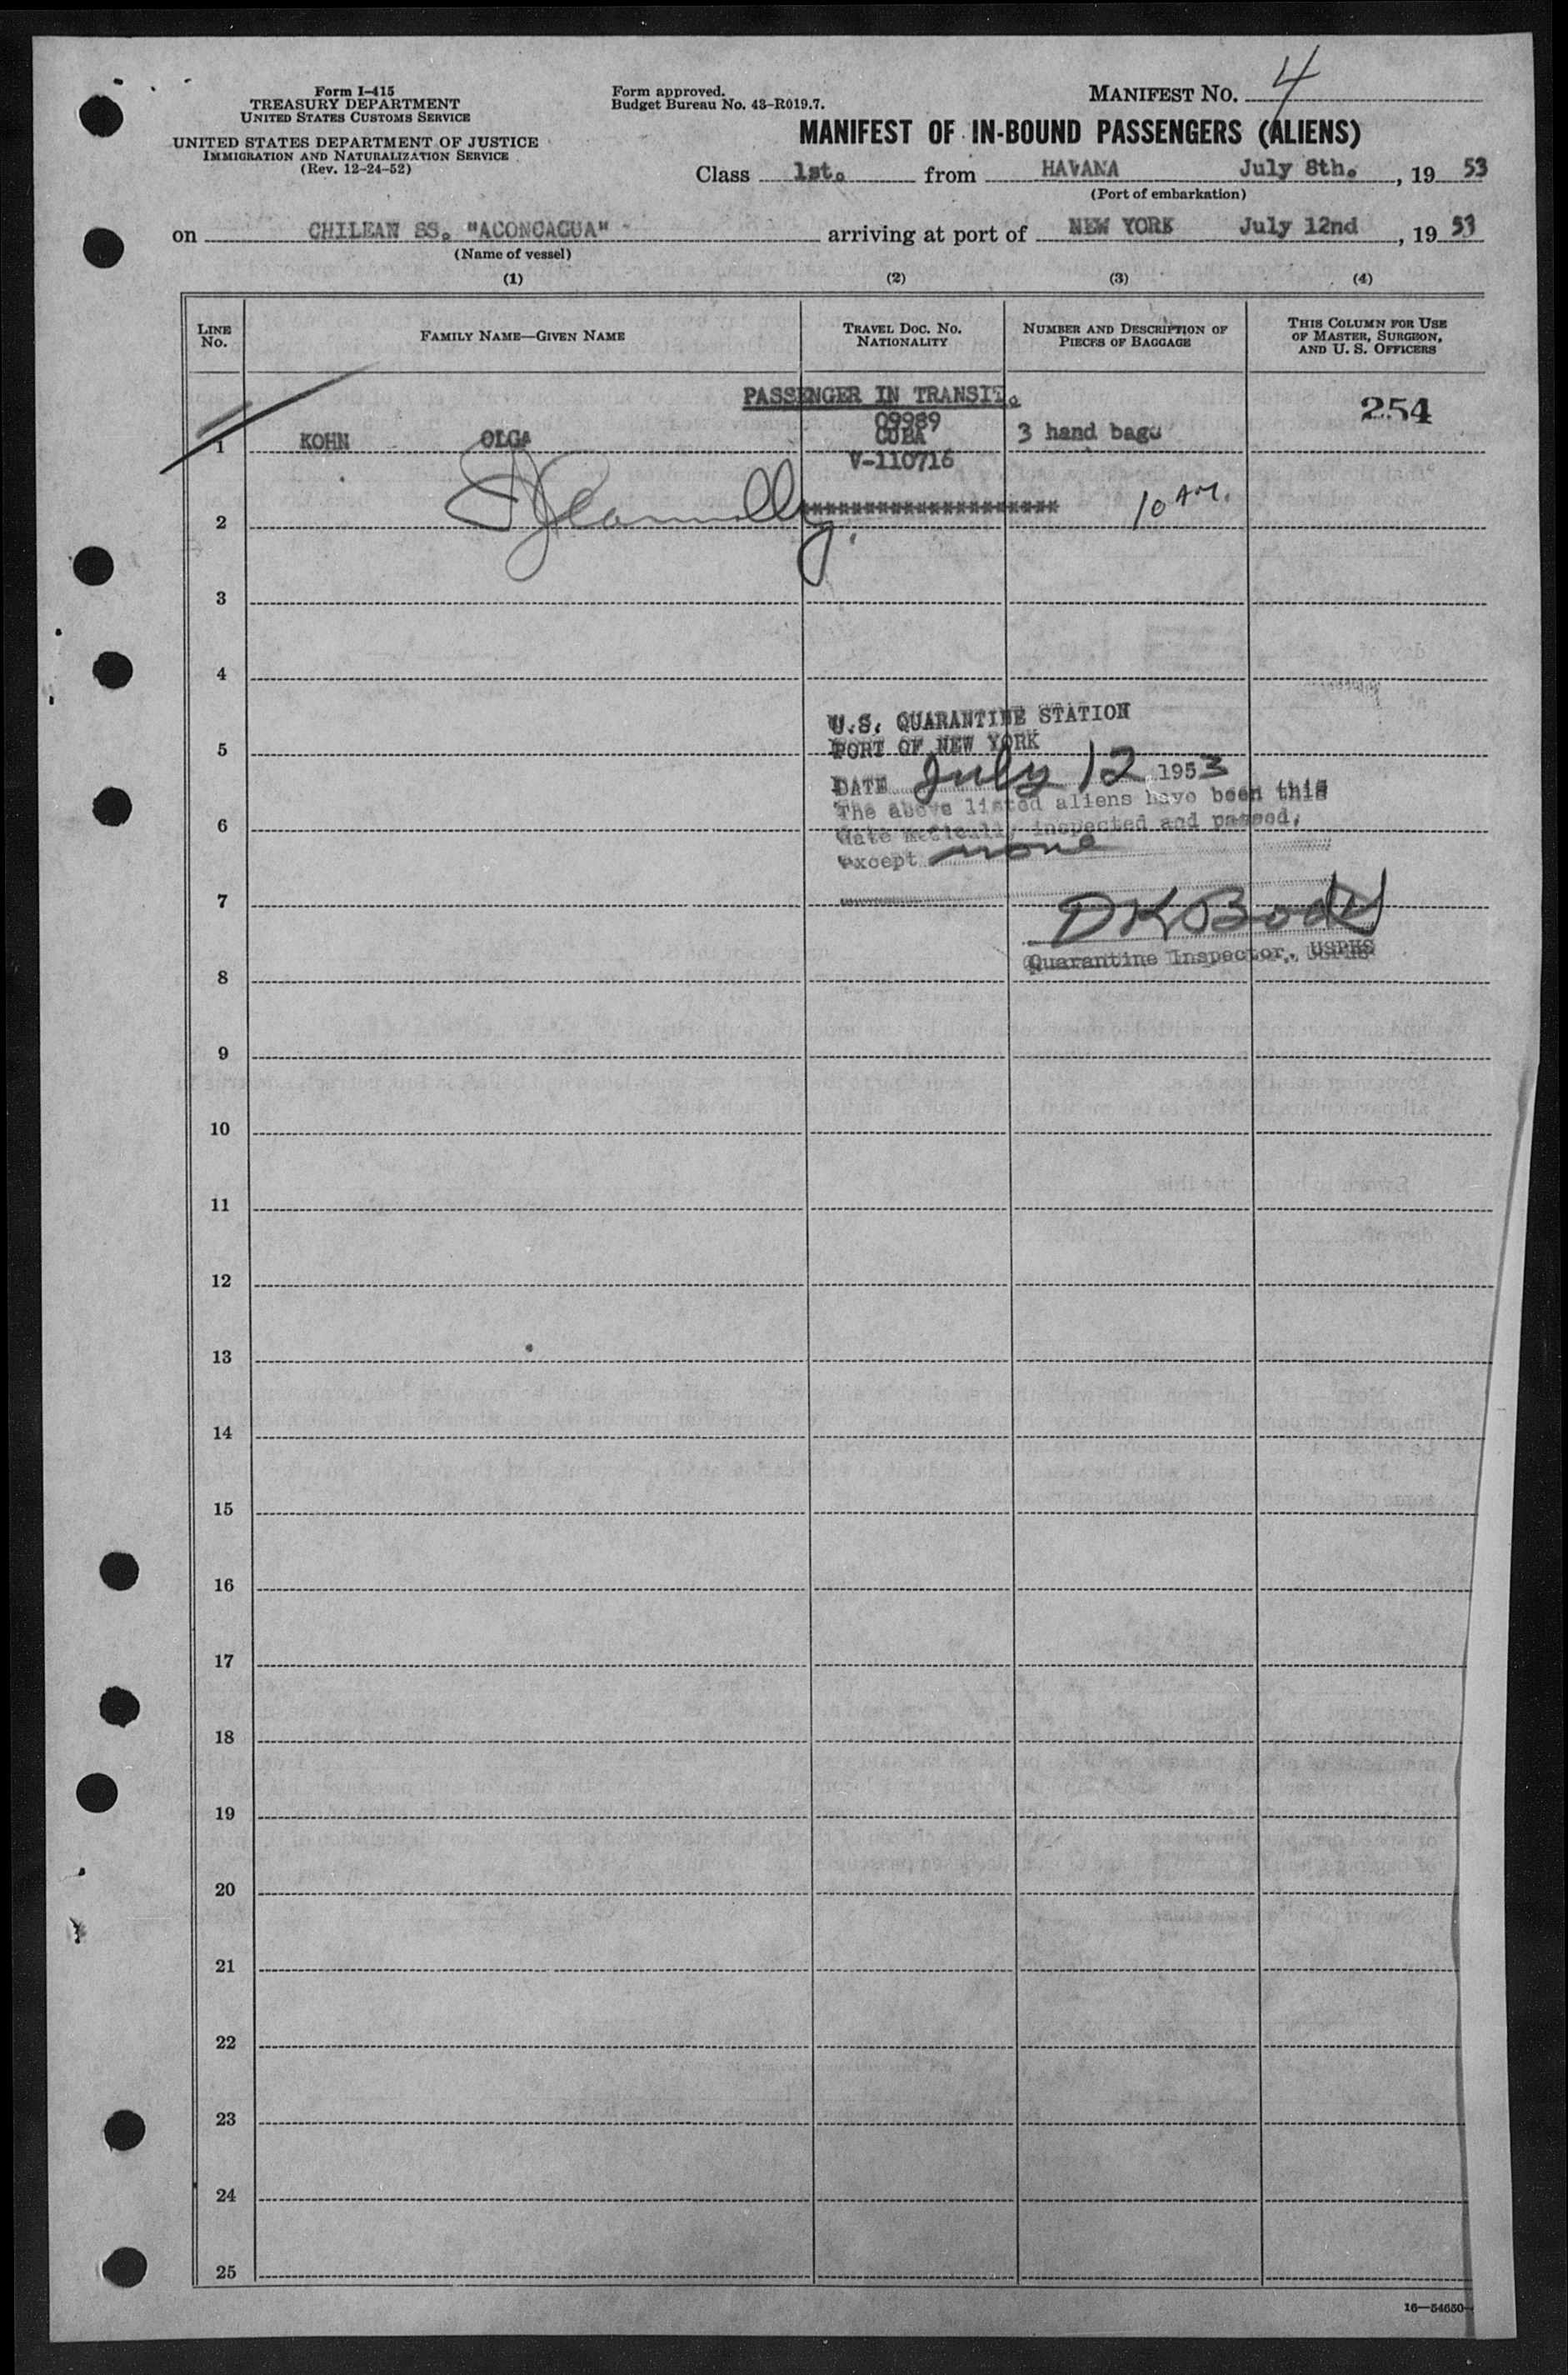 Form I-415
TREASURY DEPARTMENT
UNITED STATES CUSTOMS SERVICE
UNITED STATES DEPARTMENT OF JUSTICE
IMMIGRATION AND NATURALIZATION SERVICE
(Rev. 12-24-52)
Form approved.
Budget Bureau No. 43-R019.7.
MANIFEST NO. 4
MANIFEST OF IN-BOUND PASSENGERS (ALIENS)
Class 1st. from HAVANA July 8th., 1953
(Port of embarkation)
on CHILEAN SS. "ACONCAGUA" arriving at port of NEW YORK July 12nd, 1953
(Name of vessel)
(1) (2) (3) (4)
LINE NO. FAMILY NAME—GIVEN NAME TRAVEL DOC. NO. NATIONALITY NUMBER AND DESCRIPTION OF PIECES OF BAGGAGE THIS COLUMN FOR USE OF MASTER, SURGEON, AND U. S. OFFICERS
PASSENGER IN TRANSIT.
254
09989
1 KOHN OLGA CUBA 3 hand bags
V-110716
2 ******************* 10 AM.
3
4
U.S. QUARANTINE STATION
5 PORT OF NEW YORK
DATE July 12 1953
The above listed aliens have been this
6 date medically inspected and passed,
except none
7 DK Body
Quarantine Inspector, USPHS
8
9
10
11
12
13
14
15
16
17
18
19
20
21
22
23
24
25
16—54650-